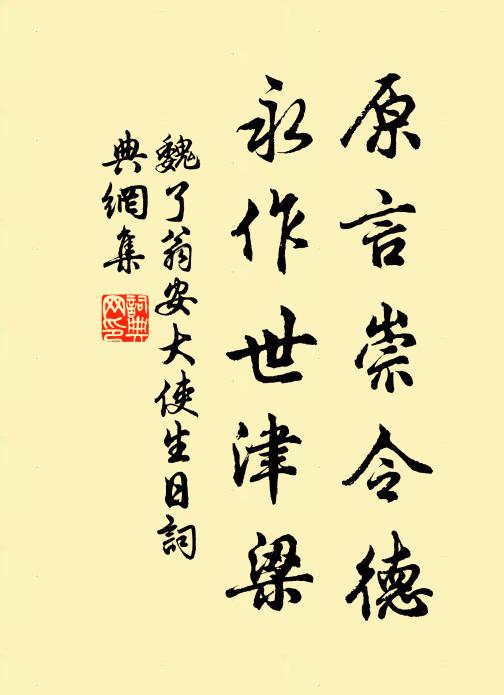 原言崇令德
永作世津梁
魏了翁安大使生日詞
典網集
詞典網印